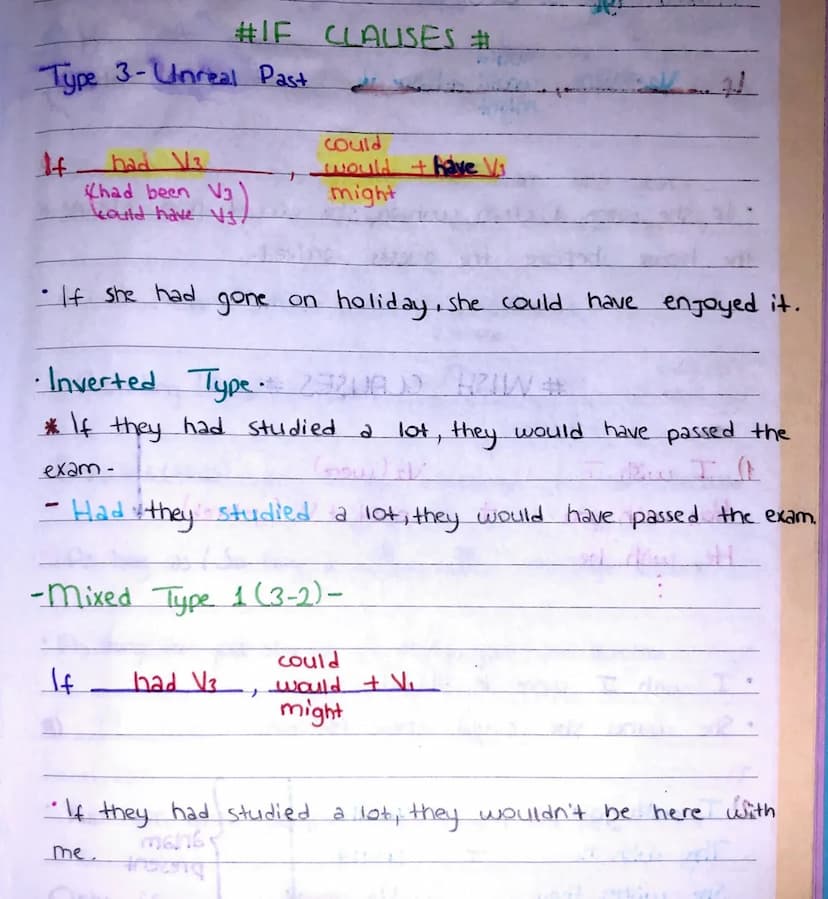 #IF CLAUSES #
Type 3-Unreal Past
could
If had V3, would + have V3
(had been V3) might
could have V3
• If she had gone on holiday, she could have enjoyed it.
• Inverted Type •
* If they had studied a lot, they would have passed the
exam -
- Had they studied a lot, they would have passed the exam.
-Mixed Type 1 (3-2)-
could
If had V3, would + V1
might
• If they had studied a lot, they wouldn't be here with
me.